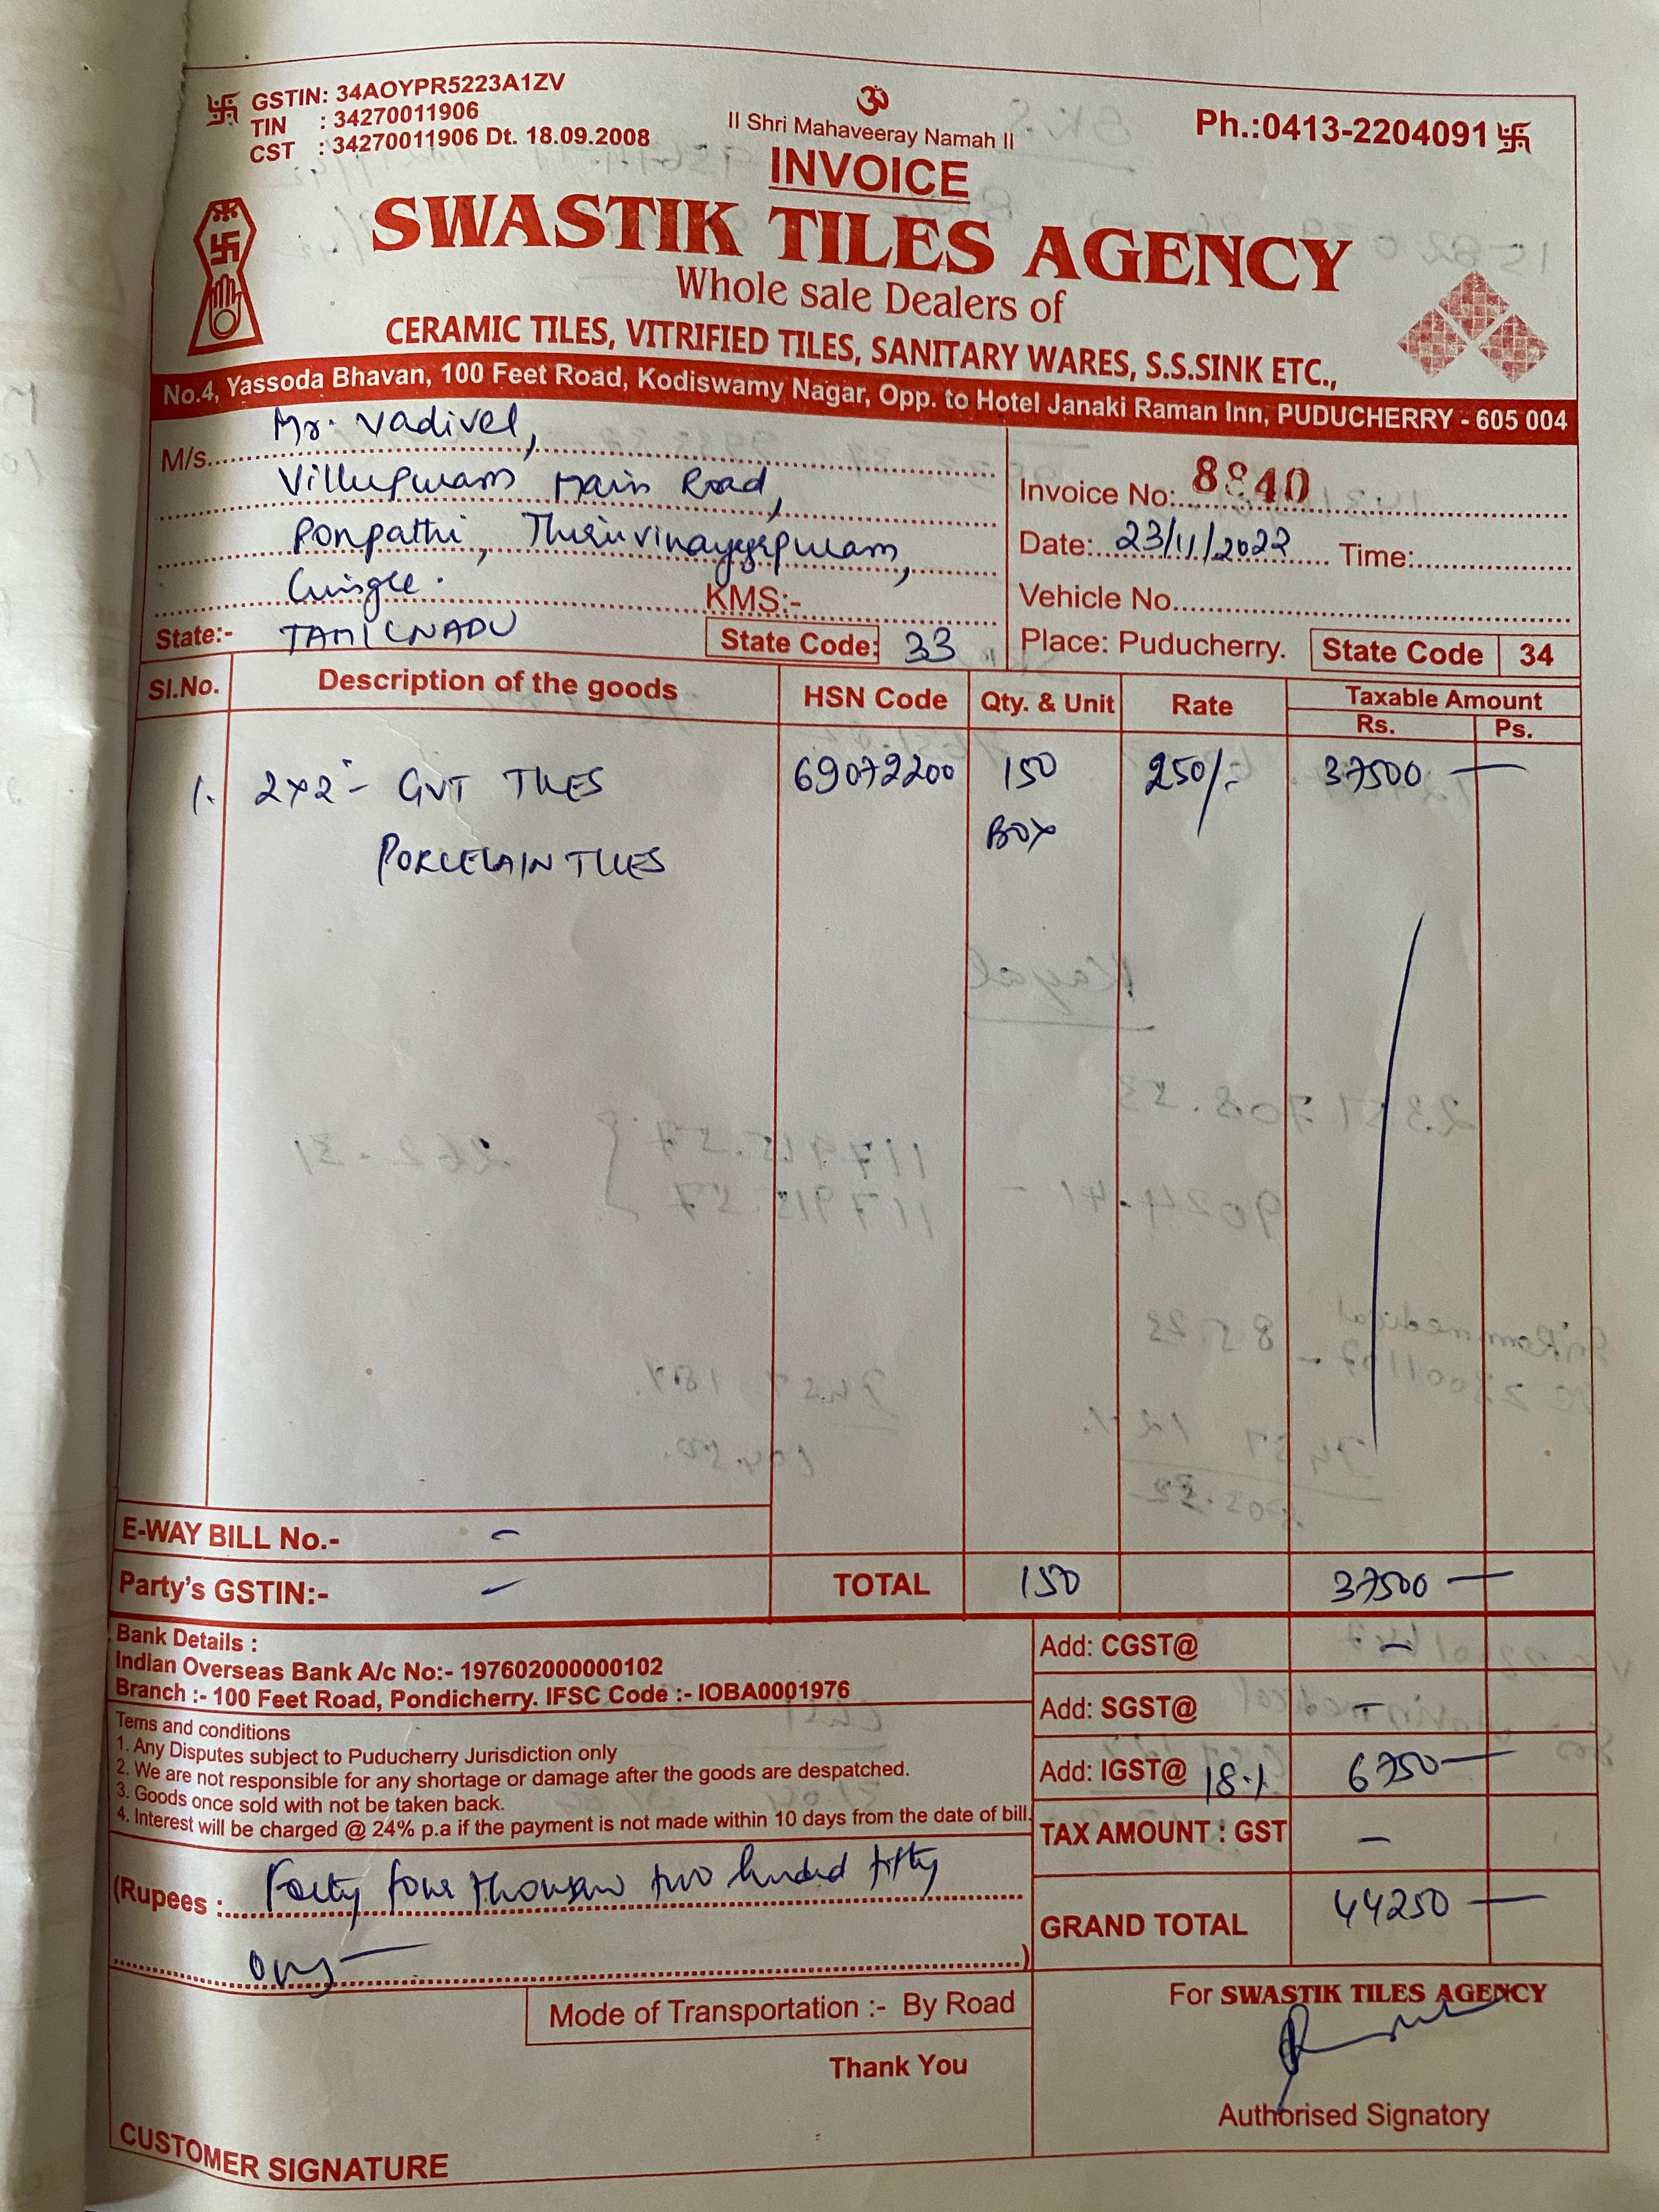 GSTIN: 34AOYPR5223A1ZV
TIN : 34270011906
CST : 34270011906 Dt. 18.09.2008
ॐ
II Shri Mahaveeray Namah II
Ph.:0413-2204091
INVOICE
SWASTIK TILES AGENCY
Whole sale Dealers of
CERAMIC TILES, VITRIFIED TILES, SANITARY WARES, S.S.SINK ETC.,
No.4, Yassoda Bhavan, 100 Feet Road, Kodiswamy Nagar, Opp. to Hotel Janaki Raman Inn, PUDUCHERRY - 605 004
M/s. Mr. Vadivel,
Villupuram Main Road,
Ponpathi, Thiruvinayagapuram,
KMS:-
State:- TAMILNADU State Code: 33
Invoice No: 8840
Date: 23/11/2022 Time:
Vehicle No.
Place: Puducherry. State Code 34
Sl.No. Description of the goods HSN Code Qty. & Unit Rate Taxable Amount
Rs. Ps.
1. 2x2 - GVT TILES 69072200 150 250/- 37500 —
PORCELAIN TILES BOX
E-WAY BILL No.- -
Party's GSTIN:- - TOTAL 150 37500 —
Bank Details :
Indian Overseas Bank A/c No:- 197602000000102
Branch :- 100 Feet Road, Pondicherry. IFSC Code :- IOBA0001976
Tems and conditions
1. Any Disputes subject to Puducherry Jurisdiction only
2. We are not responsible for any shortage or damage after the goods are despatched.
3. Goods once sold with not be taken back.
4. Interest will be charged @ 24% p.a if the payment is not made within 10 days from the date of bill.
Add: CGST@ -
Add: SGST@ -
Add: IGST@ 18% 6750 —
TAX AMOUNT : GST -
GRAND TOTAL 44250 —
(Rupees : Forty four thousan two hunded fifty
only — )
Mode of Transportation :- By Road
Thank You
For SWASTIK TILES AGENCY
Authorised Signatory
CUSTOMER SIGNATURE